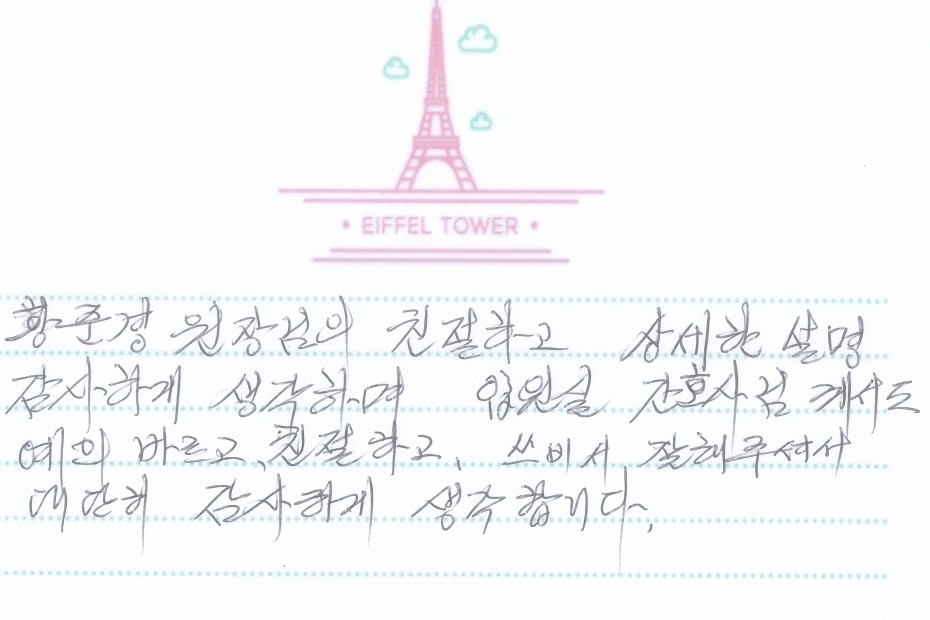 • EIFFEL TOWER •
황준경 원장님의 친절하고 상세한 설명
감사하게 생각하며 입원실 간호사님 께서도
예의 바르고, 친절하고, 쓰비서 잘해주셔서
대단히 감사하게 생각합니다.